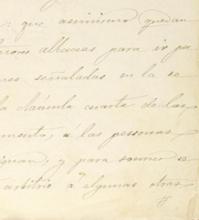 que asimismo quedan
albaceas para ir pa
señaladas en la se
la cláusula cuarta de las
mento, a las personas
signan; y para somer s
arbitrio á algunas otras